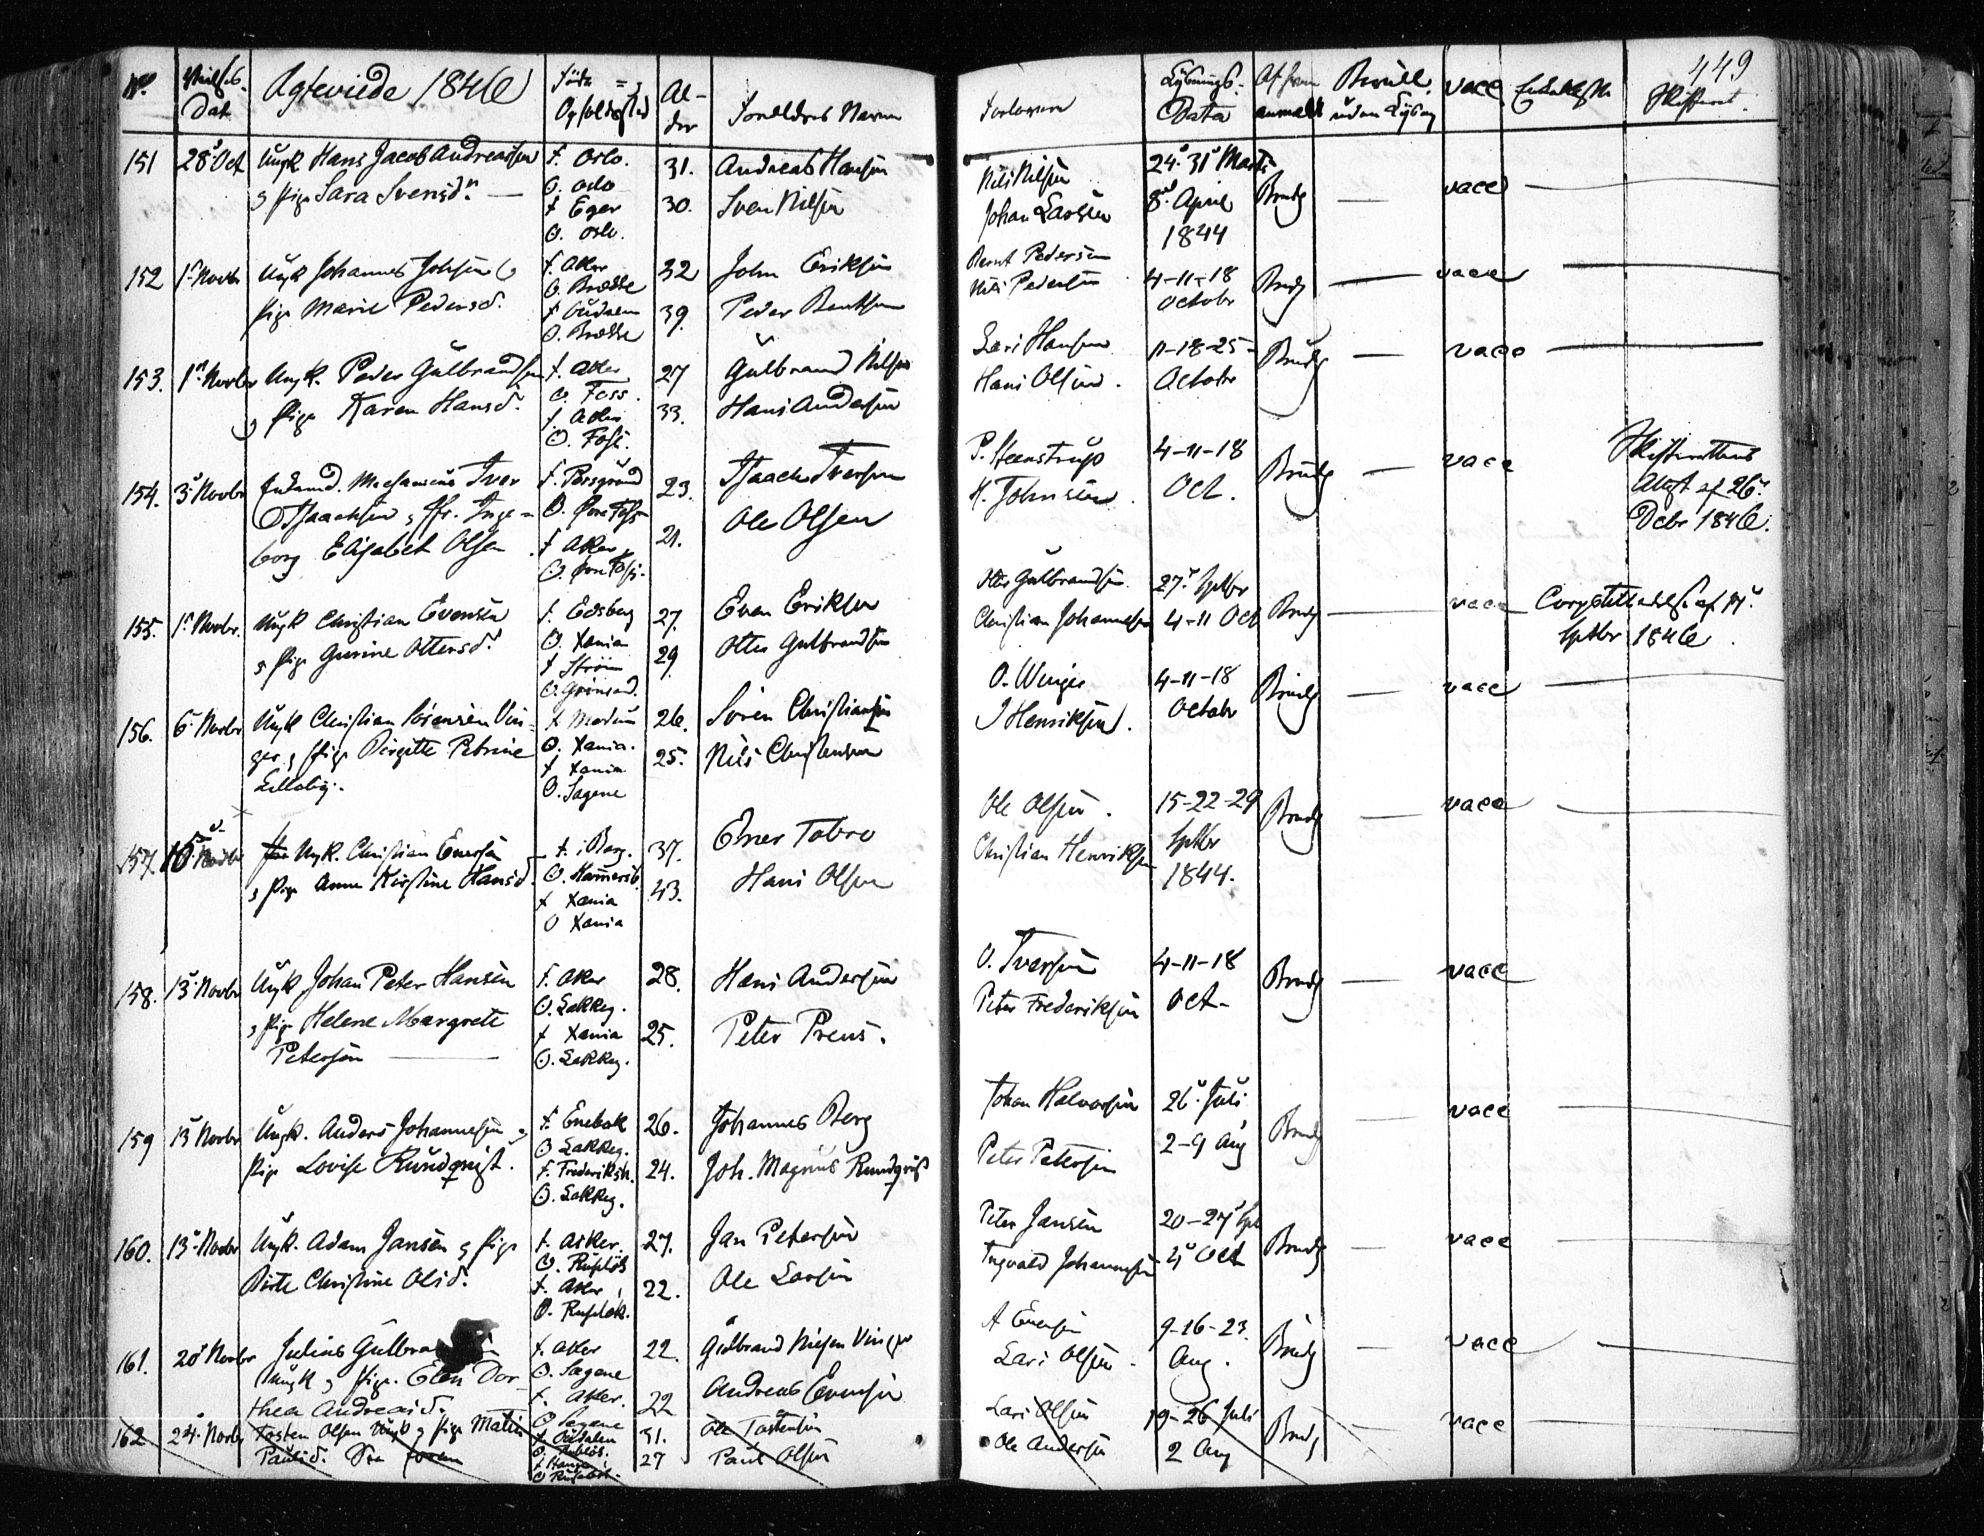 No. Vielses- Dat. Ægteviede 1846 Føde- = og Opholdssted Al- der Forældres Navne
151 28' Oct Ungk Hans Jacob Andreassen f. Oslo. 31. Andreas Hansen
og Pige Sara Svensd. O. Oslo 30. Sven Nilsen
f Eger
O. Oslo.
152 1' Novbr Ungk Johannes Johsen og f. Aker 32 John Eriksen
Pige Marie Pedersd. 39. Peder Bentsen
153. 1' Novbr Ungk. Peder Gulbrandsen f. Aker 27 Gulbrand Nilsen
og Pige Karen Hansd. O. Foss. 33. Hans Andersen
f. Aker
O. Foss.
154. 3' Novbr Mechanicus Iver f. Porsgrund 23. Isaach Iversen
Isaachsen og Jfr. Inge- 21. Ole Olsen
borg Elisabet Olsen f Aker
155. 1' Novbr. Ungk Christian Evensen f. Eidsberg 27. Even Eriksen
og Pige Gurine Ottersd. O. Xania 29. Otter Gulbrandsen
f Strøm
O. Grønland.
156. 6' Novbr Ungk Christian Sørensen Vin- f Modum 26. Sören Christiansen
ger og Pige Birgitte Petrine O. Xania. 25. Nils Christensen
Lilleby. f Xania
O. Sagene
157. 16' Novbr Ungk. Christian Enersen f. i Berg. 37. Ener Tobro
og Pige Anne Kirstine Hansd. O. Hammersb. 43. Hans Olsen
f Xania
O Xania
158. 13' Novbr Ungk Johan Peter Hansen f. Aker 28. Hans Andersen
og Pige Helene Margrete O. Lakkeg.
Petersen f Xania 25. Peter Preus.
O. Lakkeg.
159 13' Novbr Ungk. Anders Johannesen og f. Enebak 26. Johannes Berg
Pige Lovise Rundqvist. O Lakkeg. 24. Joh. Magnus Rundqvist
f. Frederiksh.
O. Lakkeg.
160. 13' Novbr Ungk. Adam Jansen og Pige f. Asker. 27. Jan Petersen
Birte Christine Olsd. f. Aker 22. Ole Larsen
161. 20' Novbr Julius Gulbra f. Aker 22. Gulbrand Nilsen Vinger
Ungk og Pige. Elen Dor- O. Sagene
thea Andreasd. f. Aker. 22 Andreas Evensen
O Sagene
162 24' Novbr Torsten Olsen Ungk og Pige Mathea 31. Ole Torstensen
Paulsd. 27 Paul Olsen
449
Forlovere Lysnings- Data Af hvem anmeldt Bevill. uden Lysning vacc Skifteret.
Nils Nilsen 24' 31' Marts
Johan Larsen 8' April 1844 Brudg — vacc
Bernt Pedersen
Nils Pedersen 4-11-18 Octobr Brudg — vacc
Lars Hansen 11-18-25-
Hans Olsen. Octobr Brudg — vacc
P. Steenstrup 4-11-18 Skifterettens
H. Johnsen Oct. Brudg — vacc Att. af 26'
Decbr 1846.
Otter Gulbrandsen 27' Septbr
Christian Johannesen 4-11 Oct Brudg — vacc af 11'
Septbr 1846
O. Winger 4-11-18
J Henriksen. Octobr Brudg — vacc
Ole Olsen. 15-22-29
Christian Henriksen Septbr 1844. Brudg — vacc
O. Iversen 4-11-18
Peter Frederiksen Oct- Brudg — vacc
Johan Halvorsen 26' Juli
Peter Petersen 2-9 Aug Brudg — vacc
Peter Jansen 20-27' Spt
Ingvald Johannesen 4' Oct Brudg — vacc
A Evensen 9-16-23.
Lars Olsen Aug. Brudg — vacc
Lars Olsen 19-26 Juli
Ole Andersen 2 Aug Brudg — vacc